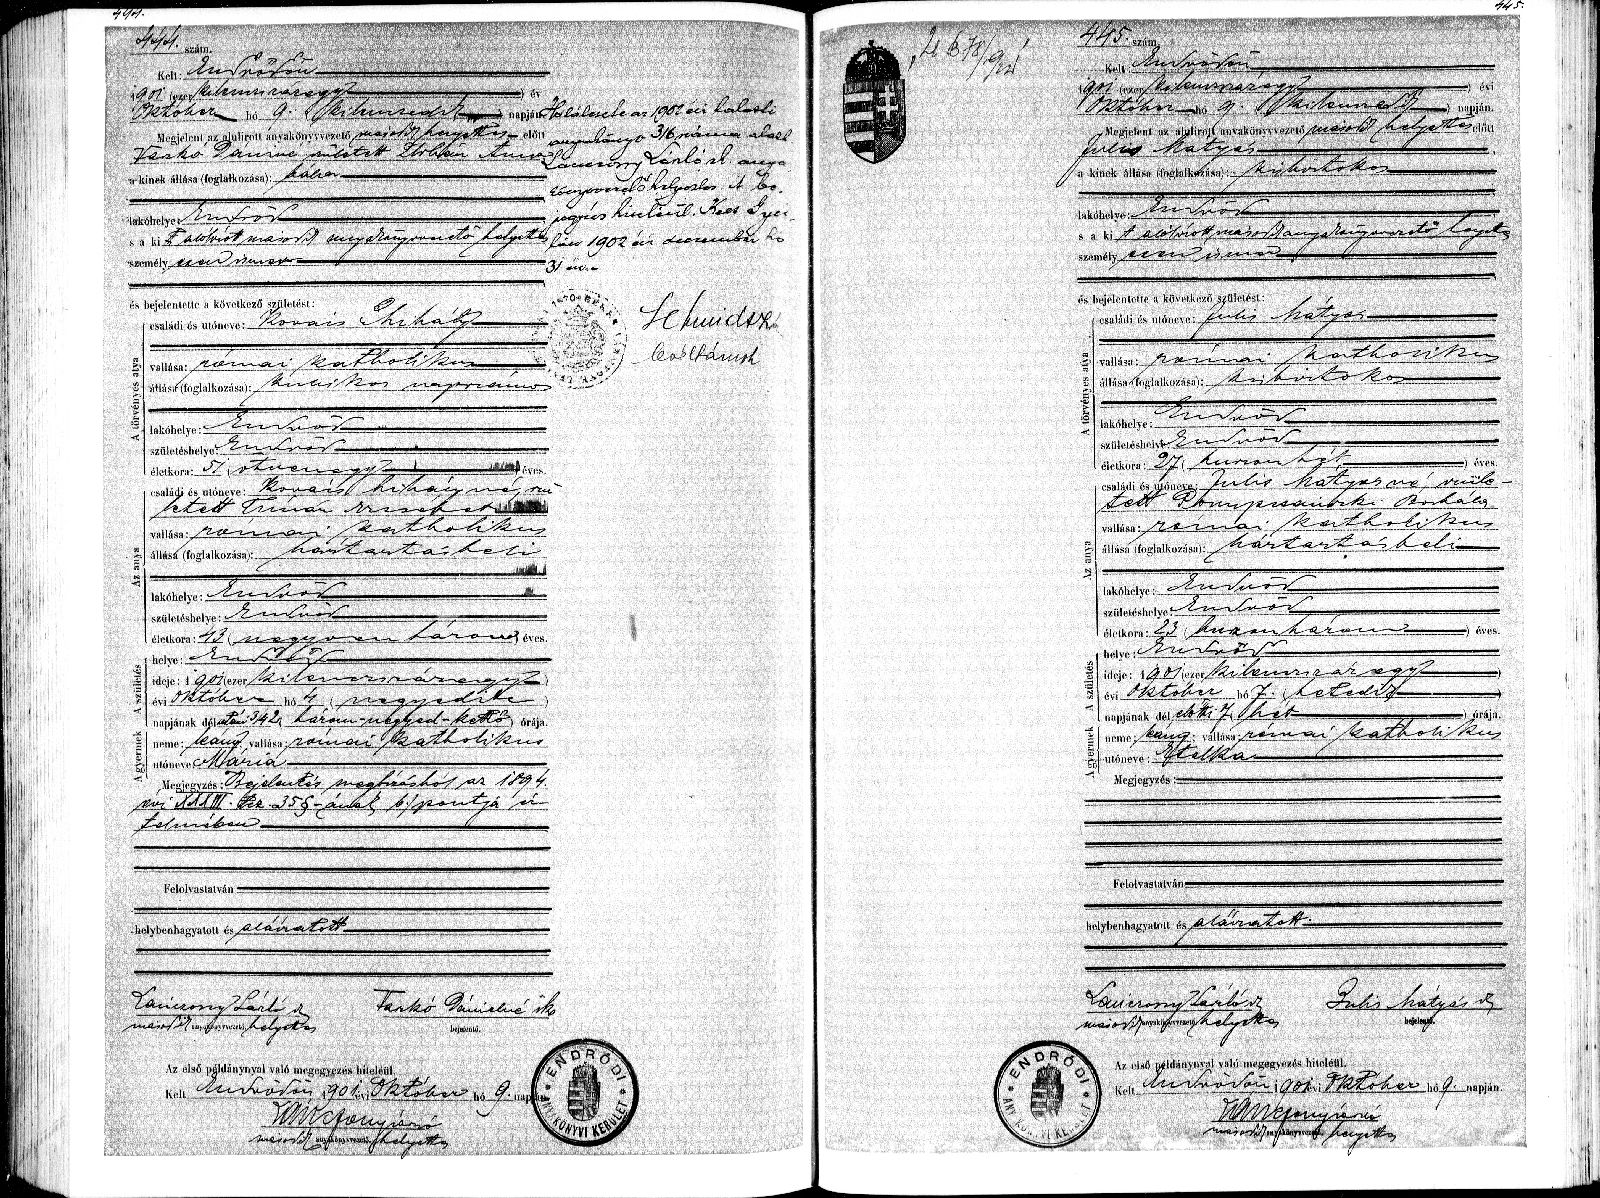 444. szám.
Kelt: Endrődön
1901 (ezer kilencszázegy) év
Október hó 9. (kilencedik) napján
Megjelent az alulirott anyakönyvvezető másod helyettes előtt
Tarkó Dánielné született
a kinek állása (foglalkozása): bába
lakóhelye: Endrőd
s a kit alólirott másod anyakönyvvezető helyettes
személyesen ismer
és bejelentette a következő születést:
A törvényes atya
családi és utóneve: Kovács Mihály
vallása: római katholikus
állása (foglalkozása): kubikos napszámos
lakóhelye: Endrőd
születéshelye: Endrőd
életkora: 51 (ötvenegy) éves.
Az anya
családi és utóneve: Kovács Mihályné, szü-
letett Erzsébet
vallása: római katholikus
állása (foglalkozása): háztartásbeli
lakóhelye: Endrőd
születéshelye: Endrőd
életkora: 43 (negyvenhárom) éves.
A születés
helye: Endrőd
ideje: 1901 (ezer kilencszázegy)
évi október hó 4 (negyedik)
napjának délután 3/4 2 (három-negyed-kettő) órája.
A gyermek
neme: leány, vallása: római katholikus
utóneve: Mária
Megjegyzés: Bejelentés megbízásból az 1894.
évi XXXIII. tcz. 35 §-ának b) pontja ér-
telmében
Felolvastatván
helybenhagyatott és aláiratott
Lánczony László
másod anyakönyvvezető helyettes
Tarkó Dánielné
bejelentő.
Az első példánynyal való megegyezés hiteléül.
Kelt Endrődön 1901 évi Október hó 9. napján
másod anyakönyvvezető helyettes
ENDRŐDI ANYAKÖNYVI KERÜLET
1902 évi halotti
316
László
1902 évi december hó
31 én
445.
445. szám.
Kelt Endrődön
1901 (ezer kilencszázegy) évi
Október hó 9. (kilenczedik) napján.
Megjelent az alulirott anyakönyvvezető másod helyettes előtt
Julis Mátyás
a kinek állása (foglalkozása): kisbirtokos
lakóhelye: Endrőd
s a kit alólirott másod anyakönyvvezető helyettes
személyesen ismer
és bejelentette a következő születést:
A törvényes atya
családi és utóneve: Julis Mátyás
vallása: római katholikus
állása (foglalkozása): kisbirtokos
lakóhelye: Endrőd
születéshelye: Endrőd
életkora: 27 (huszonhét) éves.
Az anya
családi és utóneve: Julis Mátyásné szüle-
tett Borbála
vallása: római katholikus
állása (foglalkozása): háztartásbeli
lakóhelye: Endrőd
születéshelye: Endrőd
életkora: 23 (huszonhárom) éves.
A születés
helye: Endrőd
ideje: 1901 (ezer kilencszázegy)
évi október hó 7. (hetedik)
napjának délelőtti 7 (hét) órája.
A gyermek
neme: leány; vallása: római katholikus
utóneve: Etelka
Megjegyzés:
Felolvastatván
helybenhagyatott és aláiratott
Lánczony László
másod anyakönyvvezető helyettes
Julis Mátyás
bejelentő.
Az első példánynyal való megegyezés hiteléül.
Kelt Endrődön 1901 évi Október hó 9. napján.
másod anyakönyvvezető helyettes
ENDRŐDI ANYAKÖNYVI KERÜLET